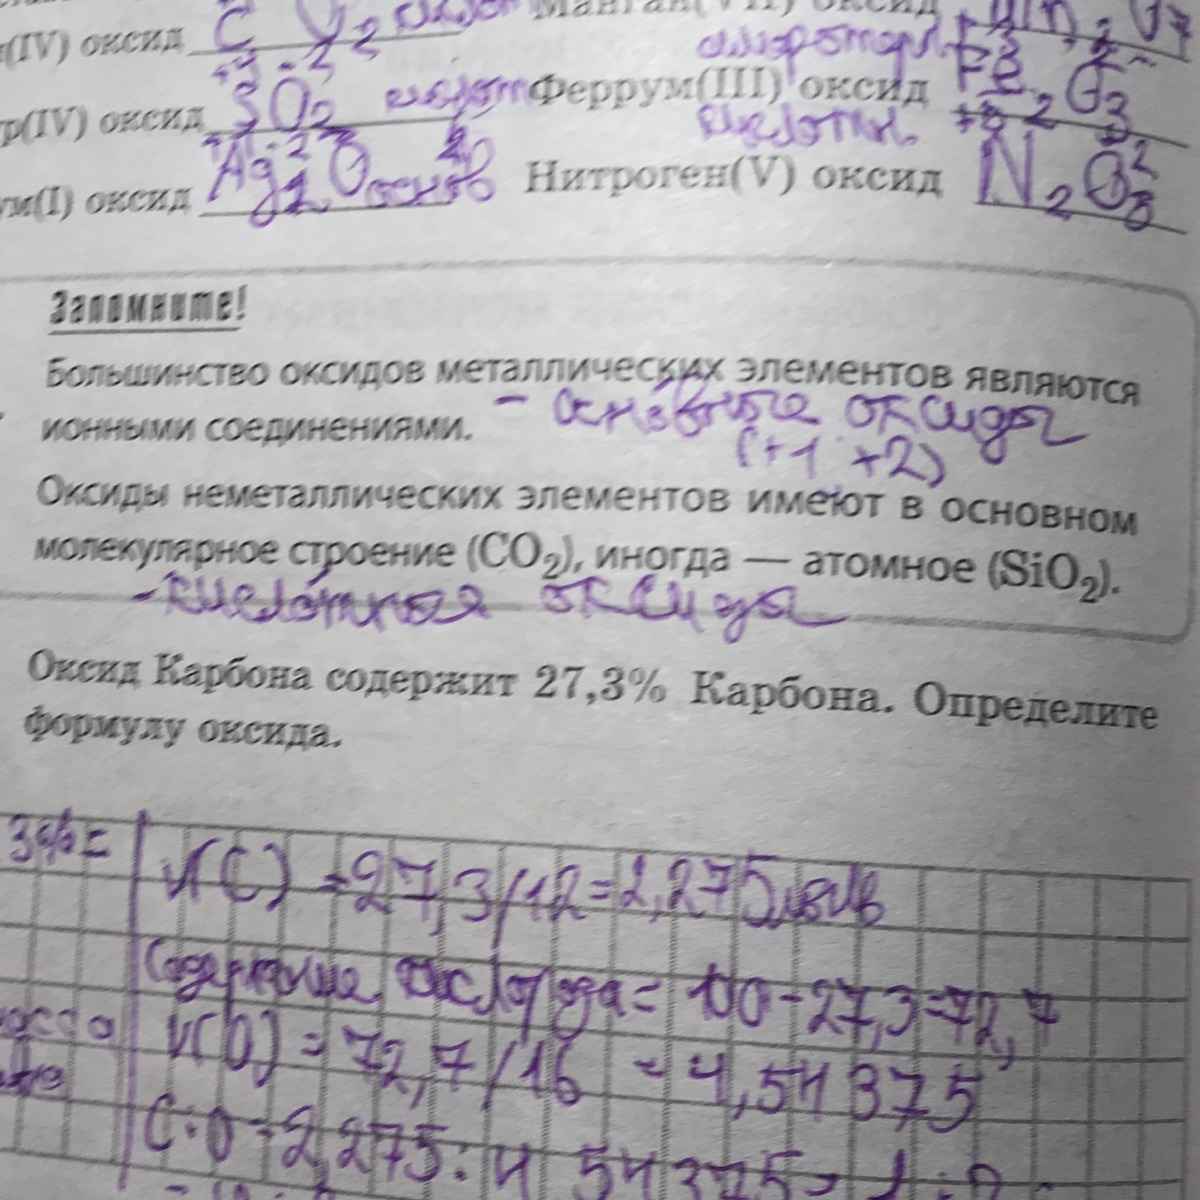 (IV) оксид C O2
Манган(VII) оксид Mn2O7
р(IV) оксид SO2
амфотерн.
Феррум(III) оксид Fe2O3
ум(I) оксид Ag2O основ
кислотн.
Нитроген(V) оксид N2O5
Запомните!
Большинство оксидов металлических элементов являются
ионными соединениями. - основные оксиды
(+1 +2)
Оксиды неметаллических элементов имеют в основном
молекулярное строение (CO2), иногда — атомное (SiO2).
- кислотные оксиды
Оксид Карбона содержит 27,3% Карбона. Определите
формулу оксида.
3%= ν(C) = 27,3/12=2,275моль
Содержание кислорода= 100-27,3=72,7
ν(O) = 72,7/16 = 4,54375
C:O=2,275:4,54375=1:2